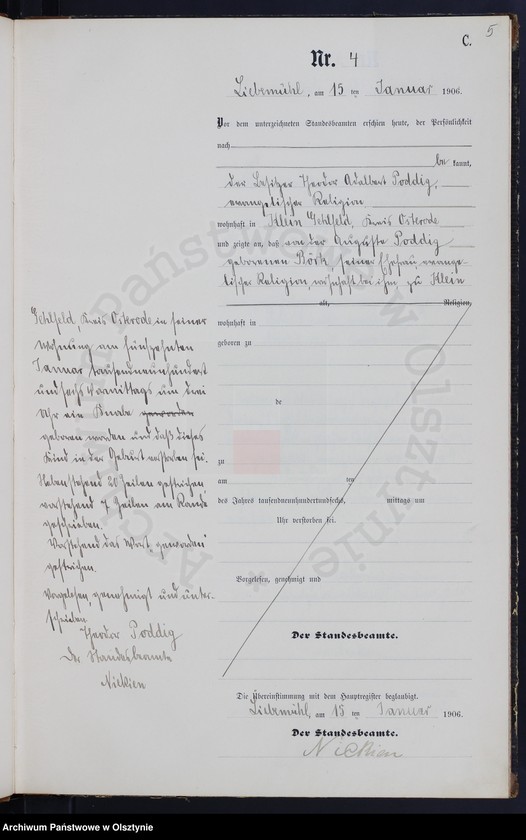 5
C.
Nr. 4
Liebemühl, am 15 ten Januar 1906.
Vor dem unterzeichneten Standesbeamten erschien heute, der Persönlichkeit
nach
be kannt,
der Besitzer Theodor Adalbert Poddig,
evangelischer Religion
wohnhaft in Klein Gehlfeld, Kreis Osterode
und zeigte an, daß von der Auguste Poddig
geborenen Börk, seiner Ehefrau, evange-
lischer Religion wohnhaft bei ihm zu Klein
alt, Religion,
wohnhaft in
geboren zu
de
zu
am ten
des Jahres tausendneunhundertundsechs, mittags um
Uhr verstorben sei.
Vorgelesen, genehmigt und
Der Standesbeamte.
Gehlfeld, Kreis Osterode in seiner
Wohnung am fünfzehnten
Januar tausendneunhundert
und sechs Vormittags um drei
Uhr ein Knabe geworden
geboren worden und daß dieses
Kind in der Geburt verstorben sei.
Nebenstehend 20 Zeilen gestrichen
vorstehend 7 Zeilen am Rande
geschrieben.
Vorstehend das Wort "geworden"
gestrichen.
Vorgelesen, genehmigt und unter-
schrieben
Theodor Poddig
Der Standesbeamte
Nickien
Die Übereinstimmung mit dem Hauptregister beglaubigt.
Liebemühl, am 15 ten Januar 1906.
Der Standesbeamte.
Nickien
Archiwum Państwowe w Olsztynie
Archiwum Państwowe w Olsztynie